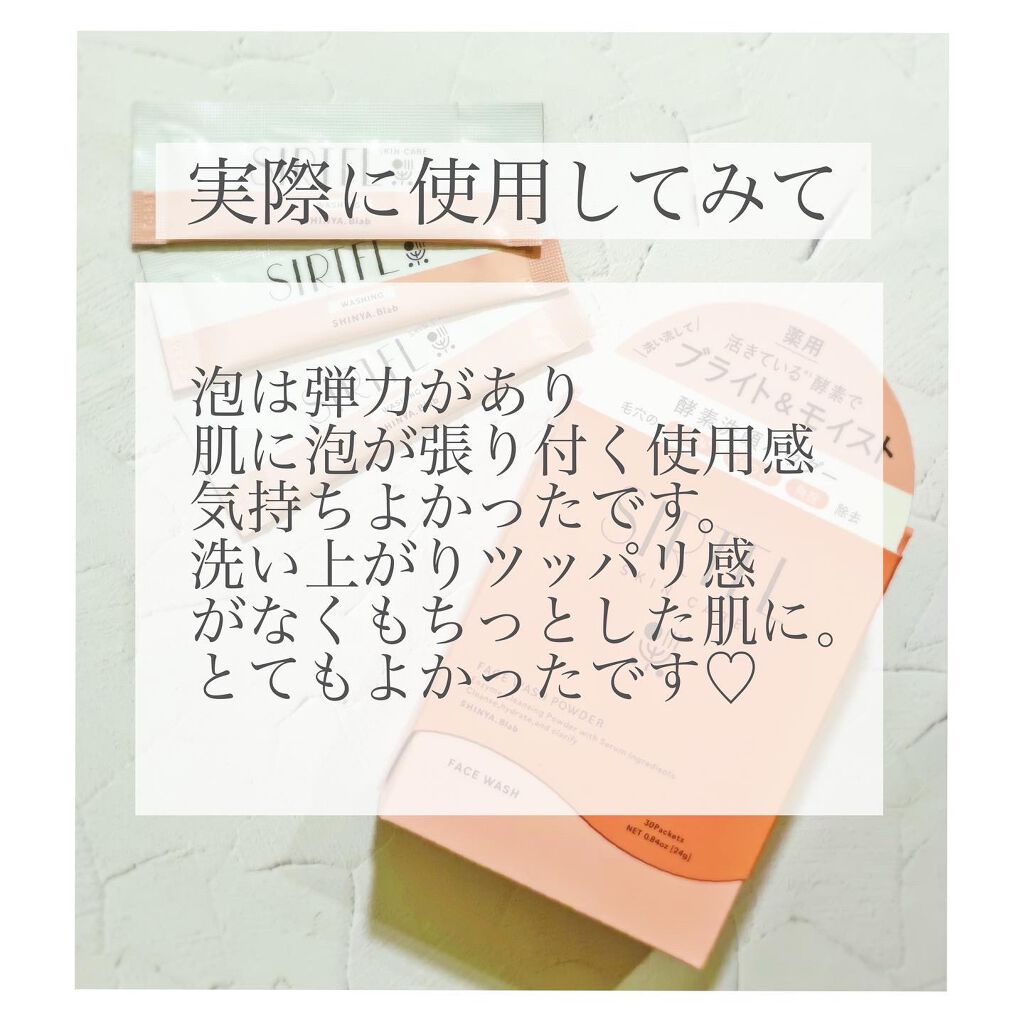 実際に使用してみて
泡は弾力があり
肌に泡が張り付く使用感
気持ちよかったです。
洗い上がりツッパリ感
がなくもちっとした肌に。
とてもよかったです♡
SKIN CARE
SHINYA.Blab
SIRTFL
WASHING
SHINYA.Blab
薬用
洗い流して
活きている 酵素で
ブライト&モイスト
酵素洗顔
毛穴の
除去
SKIN CARE
FACE WASH POWDER
Enzyme Cleansing Powder with Serum Ingredients
Cleanse, hydrate, and clarify
SHINYA.Blab
FACE WASH
30Packets
NET 0.84oz [24g]